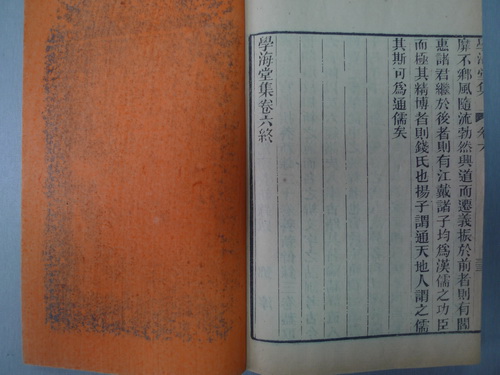 學海堂集 卷六
靡不鄉風隨流勃然興道而遷義振於前者則有閻
惠諸君繼於後者則有江戴諸子均爲漢儒之功臣
而極其精博者則錢氏也揚子謂通天地人謂之儒
其斯可爲通儒矣
學海堂集卷六終